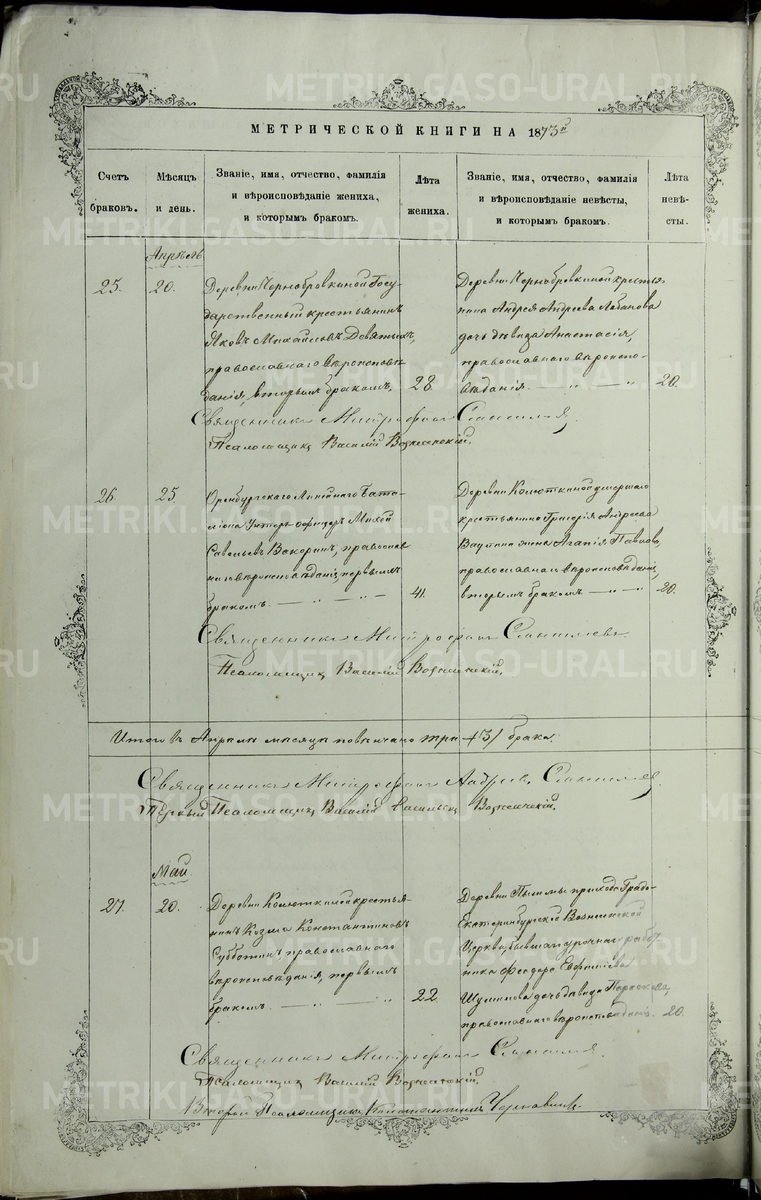 МЕТРИЧЕСКОЙ КНИГИ НА 1873й
Счетъ браковъ.
Мѣсяцъ и день.
Званіе, имя, отчество, фамилія
и вѣроисповѣданіе жениха,
и которымъ бракомъ.
Лѣта жениха.
Званіе, имя, отчество, фамилія
и вѣроисповѣданіе невѣсты,
и которымъ бракомъ.
Лѣта невѣ-
сты.
Апрѣль
25. 20.
Деревни Чернобровкиной Госу-
дарственный крестьянинъ
Яковъ Михайловъ Девятыхъ,
православнаго вѣроисповѣ-
данія, вторымъ бракомъ, 28.
Деревни Чернобровкиной кресть-
нина Андрея Андреева Лобанова
дочь дѣвица Анастасія,
православнаго вѣроиспо-
вѣданія. — „ — „ 20.
Священникъ Митрофанъ
Псаломщикъ Василій Вознесенскій.
26. 25.
Оренбургскаго Линейнаго Бата-
ліона Унтеръ-офицеръ
Савельевъ православ-
наго вѣроисповѣданія, первымъ
бракомъ. — „ — „ — 41.
Деревни Колюткиной умершаго
крестьянина Григорія Андреева
Ваутина жена Агапія Павлова,
православнаго вѣроисповѣданія,
вторымъ бракомъ — „ — 20.
Священникъ Митрофанъ
Псаломщикъ Василій Вознесенскій,
Итого въ Апрѣлѣ мѣсяцѣ повѣнчано три /3/ брака.
Священникъ Митрофанъ
Первый Псаломщикъ Василій Васильевъ Вознесенскій.
Май
27. 20.
Деревни Колюткиной крестья-
нинъ Козма Константиновъ
Субботинъ православнаго
вѣроисповѣданія, первымъ
бракомъ — „ — „ 22.
Деревни прихода Градо-
Екатеринбургской Вознесенской
Церкви, бывшаго урочнаго рабо-
тника Феодора
дочь дѣвица
православнаго вѣроисповѣданія. 20.
Священникъ Митрофанъ
Псаломщикъ Василій Вознесенскій.
Второй Псаломщикъ Константинъ
METRIKI.GASO-URAL.RU